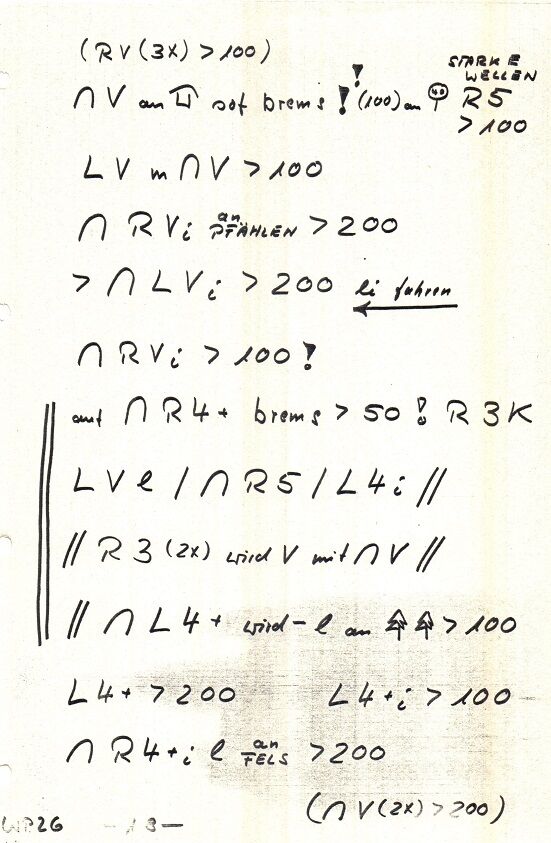 (RV(3x) > 100)
STARKE
WELLEN
∩ V an sof brems ! ! (100) an 40 R5
> 100
L V m ∩ V > 100
∩ R V i an PFÄHLEN > 200
> ∩ L V i > 200 li fahren
∩ R V i > 100 !
auf ∩ R 4 + brems > 50 ! R 3 K
L V l / ∩ R 5 / L 4 i //
// R 3 (2x) wird V mit ∩ V //
// ∩ L 4 + wird - l an > 100
L 4 + > 200 L 4 + i > 100
∩ R 4 + i l an FELS > 200
(∩ V (2x) > 200)
WP26 - 13 -